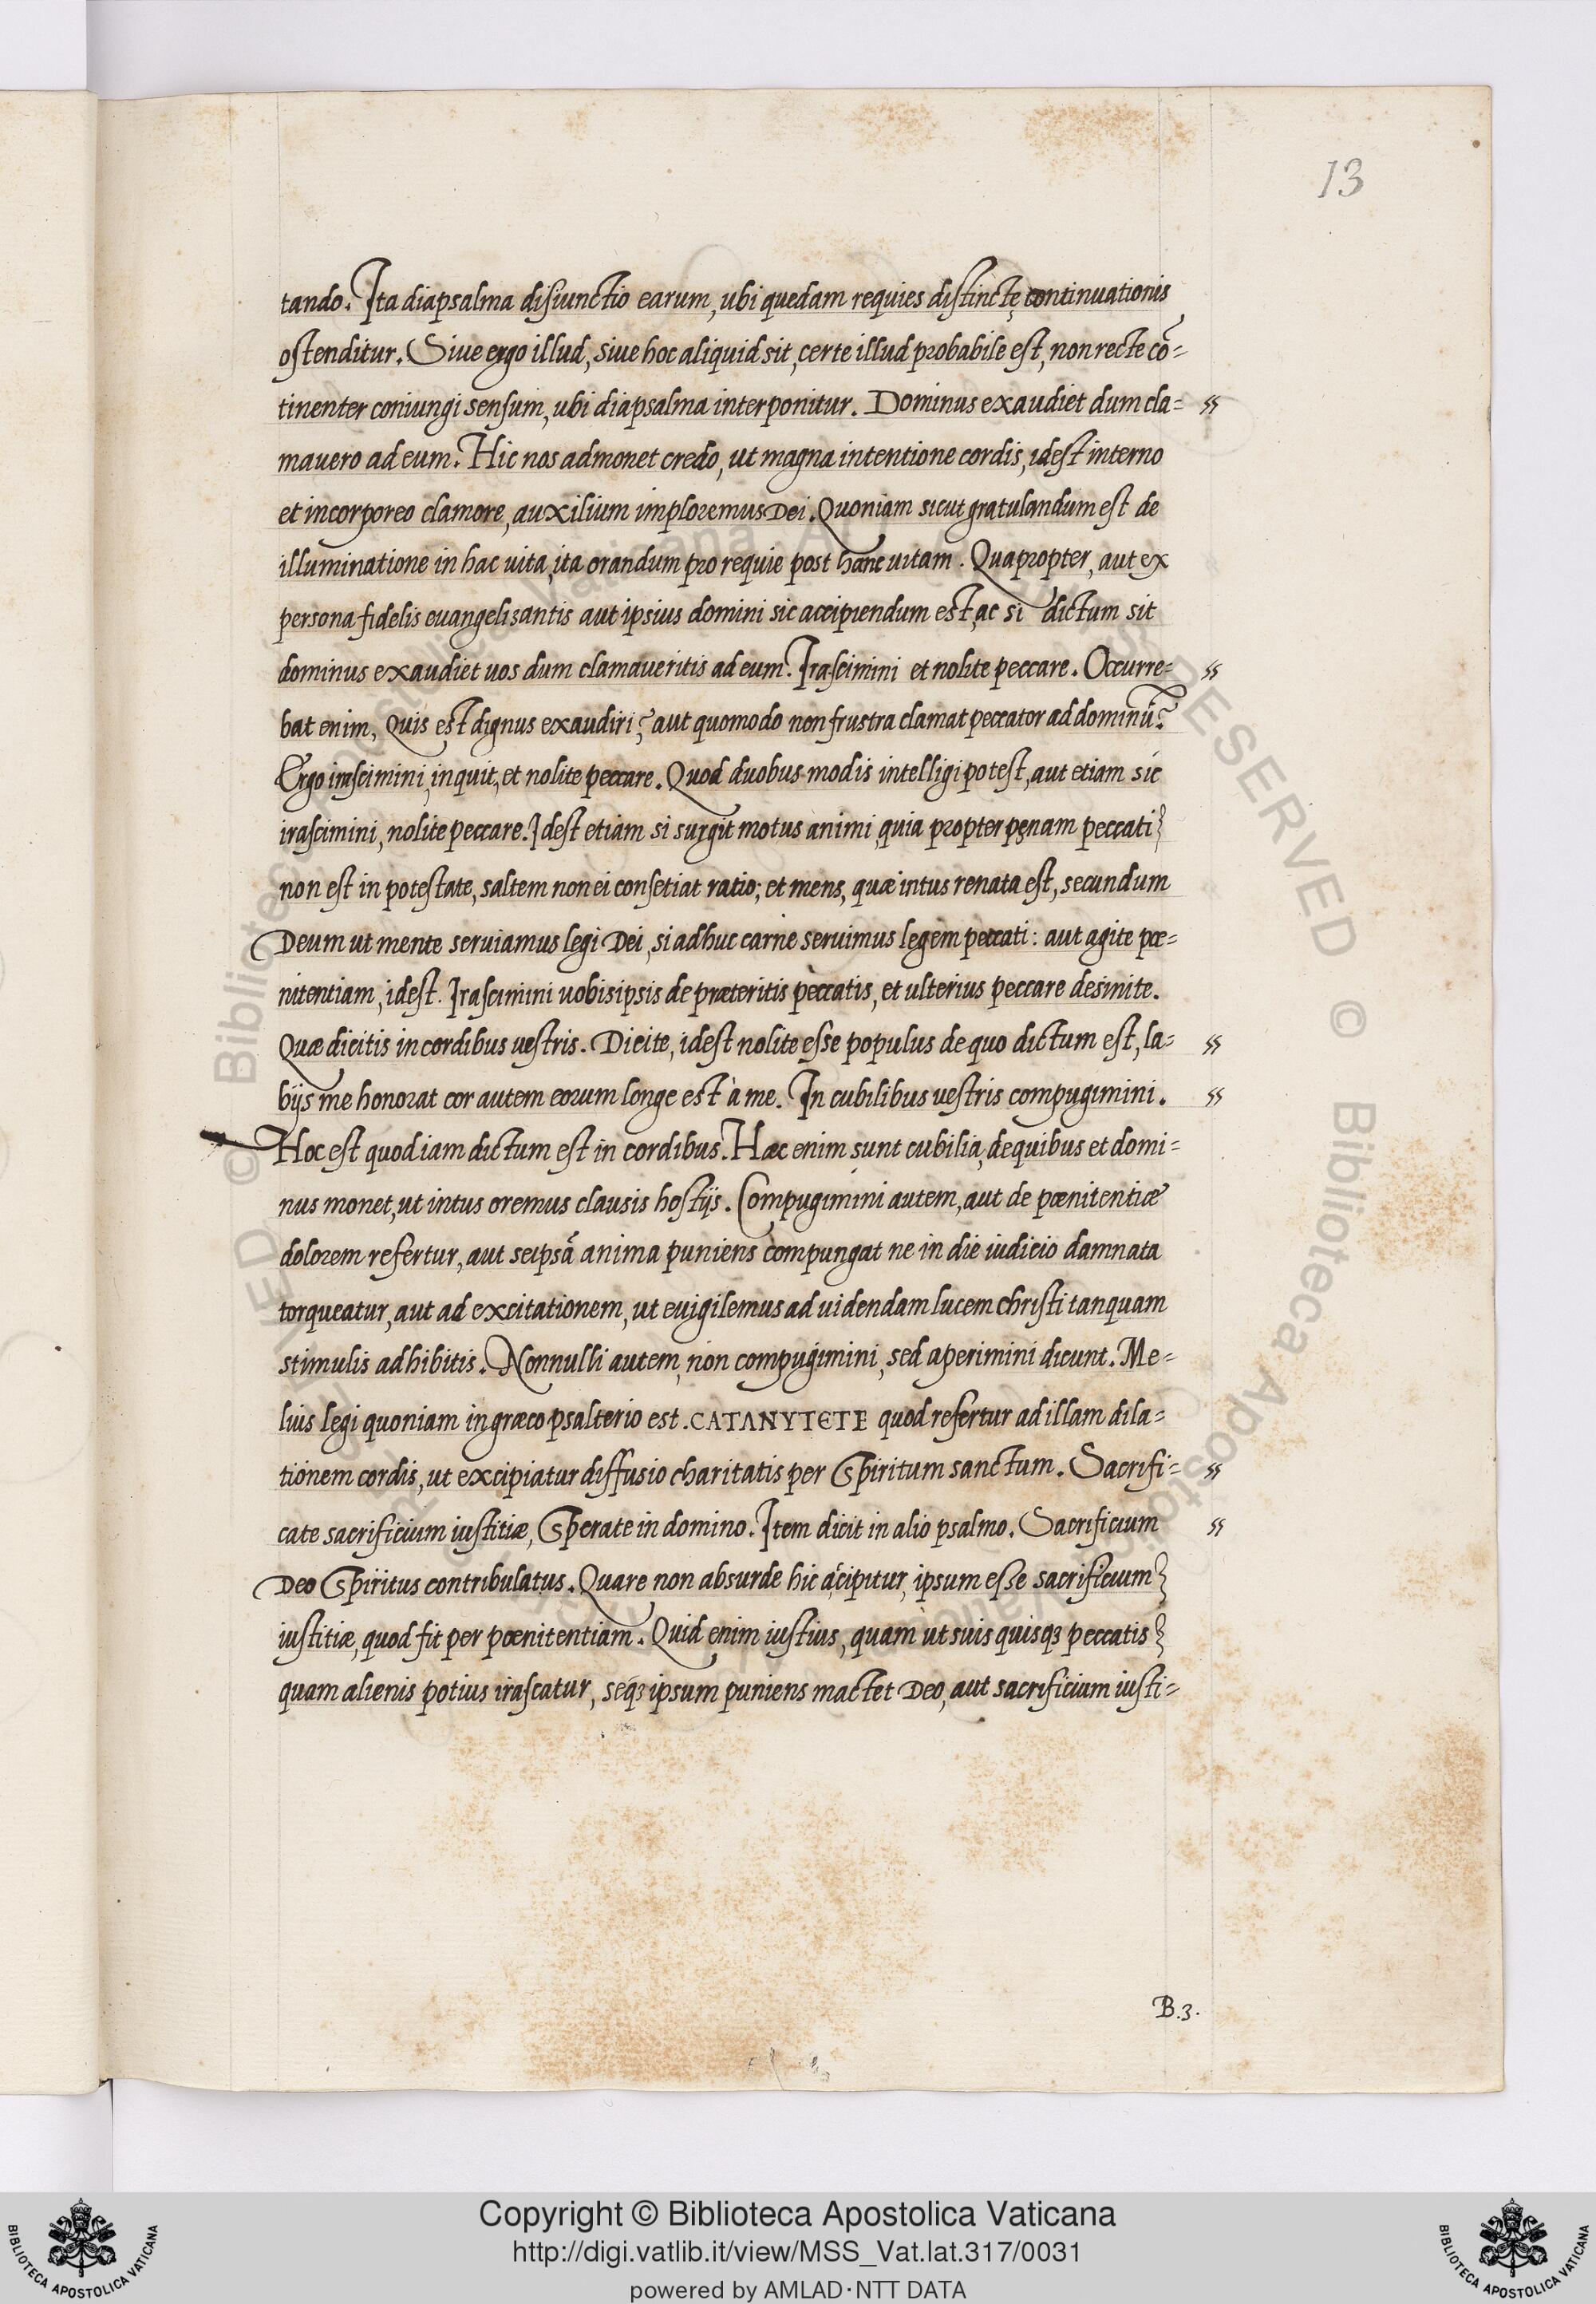 13
tando. Ita diapsalma disiunctio earum, ubi quedam requies distinctę continuationis
ostenditur. Siue ergo illud, siue hoc aliquid sit, certe illud probabile est, non recte cõ=
tinenter coniungi sensum, ubi diapsalma interponitur. Dominus exaudiet dum cla=
mauero ad eum. Hic nos admonet credo, ut magna intentione cordis, idest interno
et incorporeo clamore, auxilium imploremus Dei. Quoniam sicut gratulandum est de
illuminatione in hac uita, ita orandum pro requie post hanc uitam. Quapropter, aut ex
persona fidelis euangelisantis aut ipsius domini sic accipiendum est, ac si dictum sit
dominus exaudiet uos dum clamaueritis ad eum. Irascimini et nolite peccare. Occurre=
bat enim, Quis est dignus exaudiri? aut quomodo non frustra clamat peccator ad dominũ?
Ergo irascimini, inquit, et nolite peccare. Quod duobus modis intelligi potest, aut etiam sic
irascimini, nolite peccare. Idest etiam si surgit motus animi, quia propter pęnam peccati
non est in potestate, saltem non ei consetiat ratio; et mens, quæ intus renata est, secundum
Deum ut mente seruiamus legi Dei, si adhuc carne seruimus legem peccati: aut agite pœ=
nitentiam, idest. Irascimini uobisipsis de præteritis peccatis, et ulterius peccare desinite.
Quæ dicitis in cordibus uestris. Dicite, idest nolite esse populus de quo dictum est, la=
bijs me honorat cor autem eorum longe est à me. In cubilibus uestris compugimini.
Hoc est quod iam dictum est in cordibus. Hæc enim sunt cubilia, de quibus et domi=
nus monet, ut intus oremus clausis hostijs. Compugimini autem, aut de pœnitentiæ
dolorem refertur, aut seipsã anima puniens compungat ne in die iudicio damnata
torqueatur, aut ad excitationem, ut euigilemus ad uidendam lucem christi tanquam
stimulis adhibitis. Nonnulli autem, non compugimini, sed aperimini dicunt. Me=
lius legi quoniam in græco psalterio est. CATANYTETE quod refertur ad illam dila=
tionem cordis, ut excipiatur diffusio charitatis per Spiritum sanctum. Sacrifi=
cate sacrificium iustitiæ, Sperate in domino. Item dicit in alio psalmo. Sacrificium
Deo Spiritus contribulatus. Quare non absurde hic acipitur, ipsum esse sacrificium
iustitiæ, quod fit per pœnitentiam. Quid enim iustius, quam ut suis quisqȝ peccatis
quam alienis potius irascatur, seqȝ ipsum puniens mactet Deo, aut sacrificium iusti=
B.3.
Copyright © Biblioteca Apostolica Vaticana
http://digi.vatlib.it/view/MSS_Vat.lat.317/0031
powered by AMLAD·NTT DATA
BIBLIOTECA APOSTOLICA VATICANA
BIBLIOTECA APOSTOLICA VATICANA